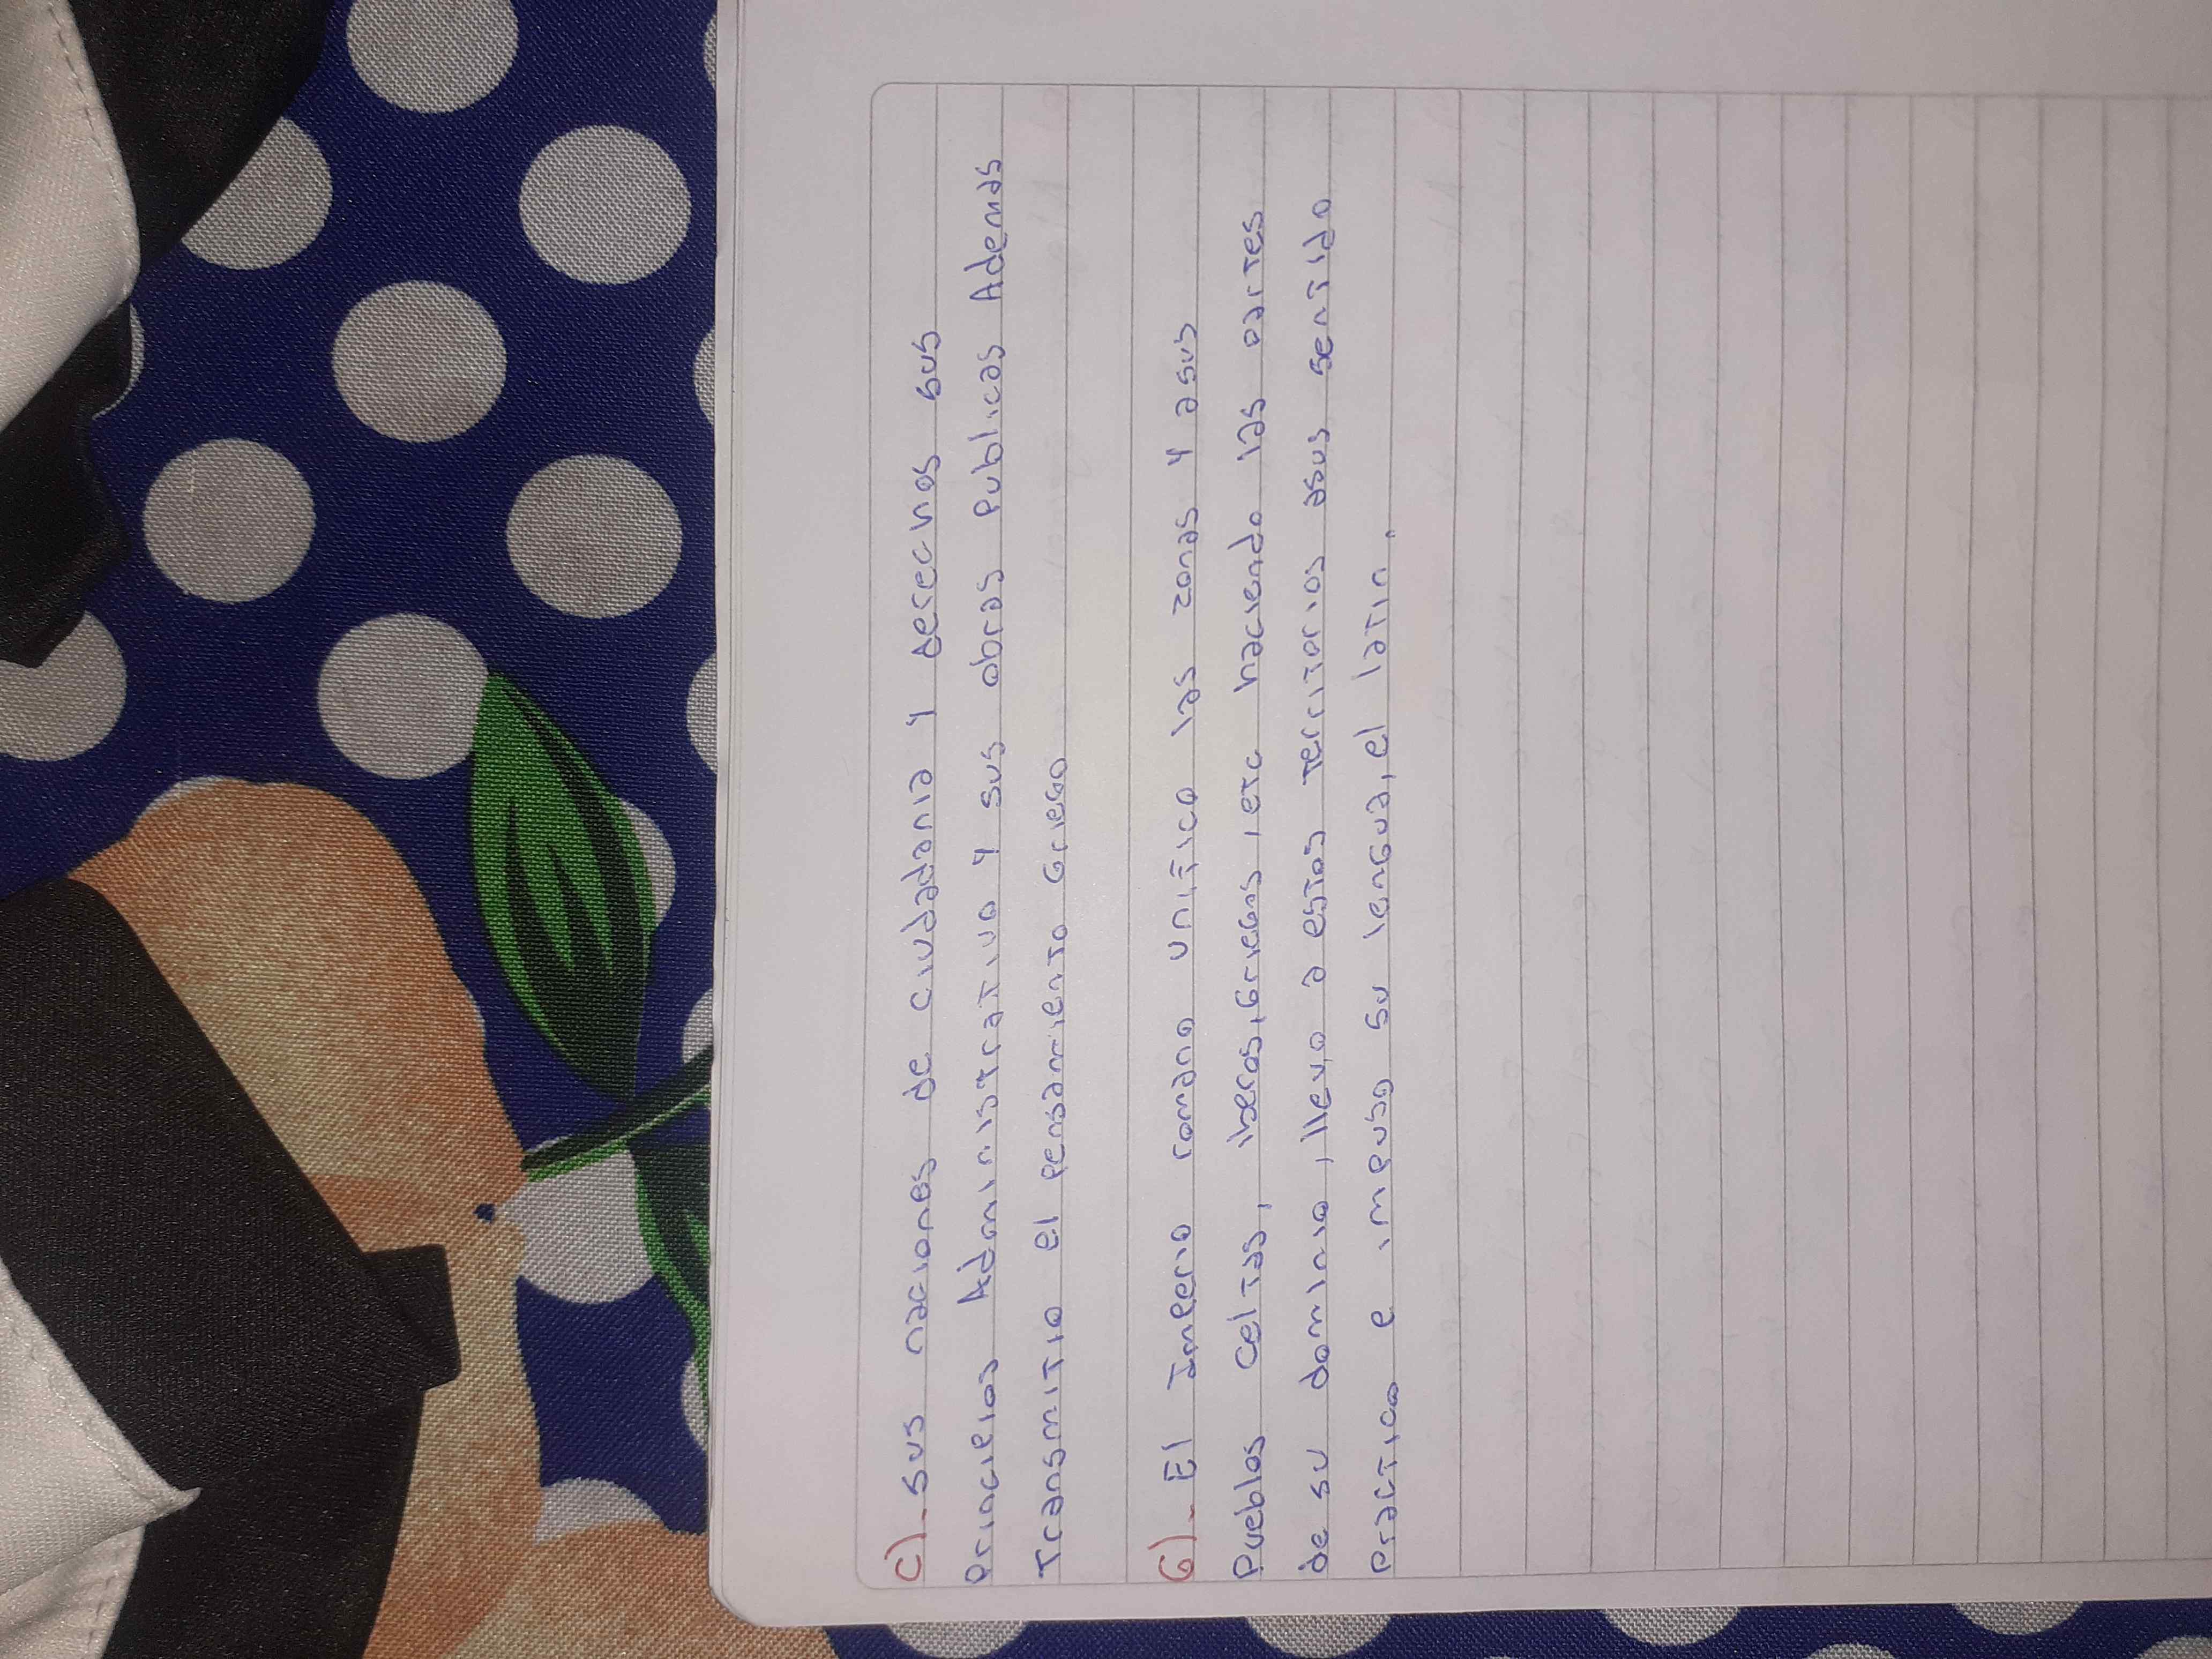 C)- sus naciones de ciudadania y derechos sus
principios Administrativo y sus obras publicas Ademas
Transmitio el pensamiento Griego
6)- El Imperio romano unifico las zonas y asus
Pueblos celtas, iberos, Griegos, etc haciendo las partes
de su dominio, llevo a estos territorios asus sentido
practico e impuso su lengua, el latin.